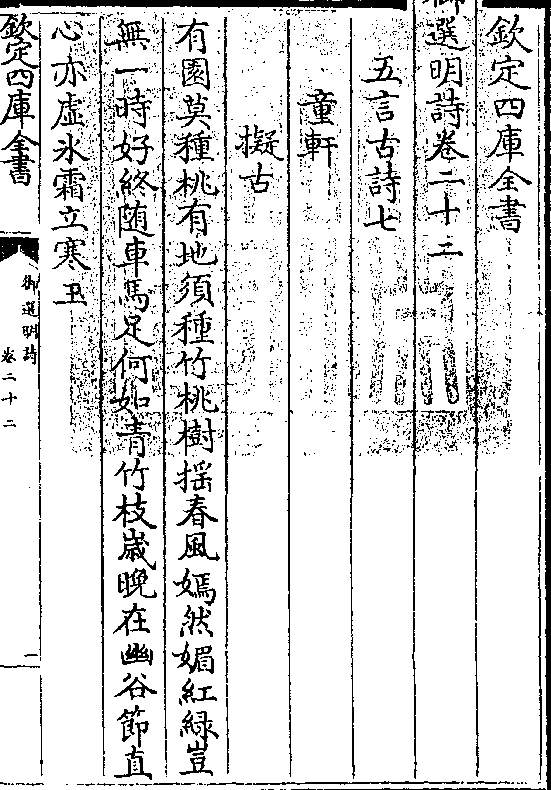 欽定四庫全書
御選明詩卷二十二
五言古詩七
童軒
擬古
有園莫種桃有地須種竹桃樹揺春風嫣然媚紅緑豈
無一時好終随車馬足何如青竹枝嵗晚在幽谷節直
心亦虛氷霜立寒玉
欽定四庫全書
御選明詩
卷二十二
一